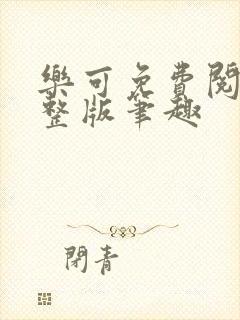 樂可免費閱
整版筆趣
閉青